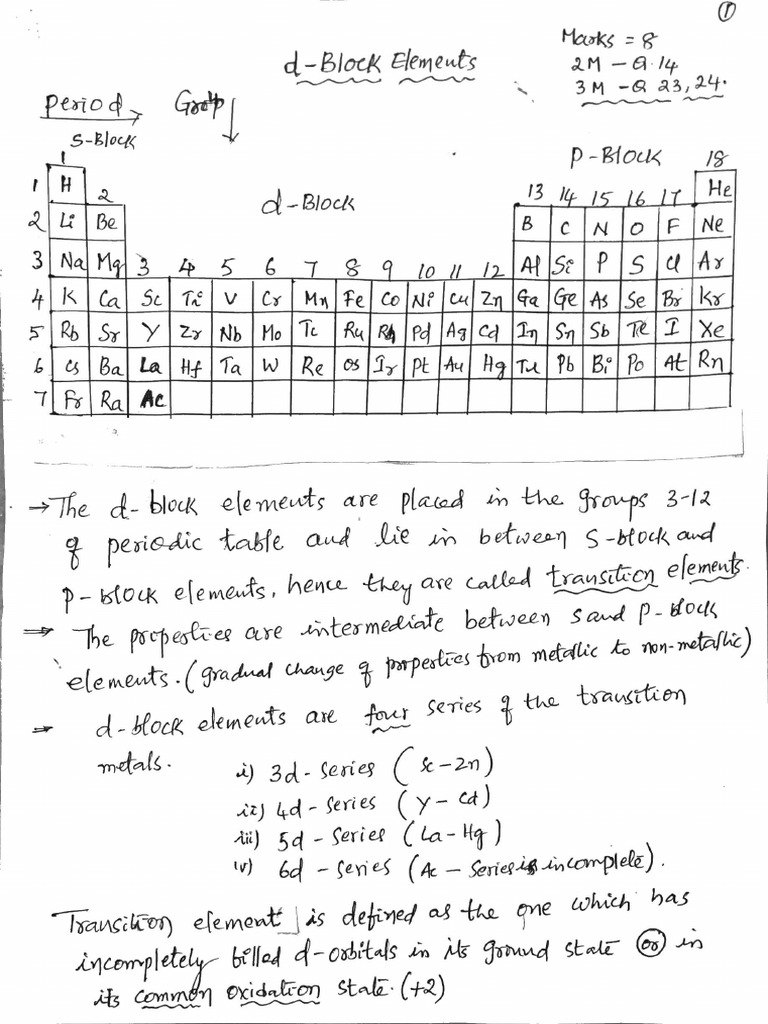 ①
d-Block Elements
Marks = 8
2M - Q.14
3M - Q 23, 24.
Period
Group
S-Block
P-Block
d-Block
1 18
1 H 2 13 14 15 16 17 He
2 Li Be B C N O F Ne
3 Na Mg 3 4 5 6 7 8 9 10 11 12 Al Si P S Cl Ar
4 K Ca Sc Ti V Cr Mn Fe Co Ni Cu Zn Ga Ge As Se Br Kr
5 Rb Sr Y Zr Nb Mo Tc Ru Rh Pd Ag Cd In Sn Sb Te I Xe
6 Cs Ba La Hf Ta W Re Os Ir Pt Au Hg Pb Bi Po At Rn
7 Fr Ra Ac
→ The d-block elements are placed in the groups 3-12
of periodic table and lie in between S-block and
p-block elements, hence they are called transition elements.
⇒ The properties are intermediate between s and p-block
elements. (gradual change of properties from metallic to non-metallic)
⇒ d-block elements are four series of the transition
metals.
i) 3d-Series (Sc-Zn)
ii) 4d-Series (Y-Cd)
iii) 5d-Series (La-Hg)
iv) 6d-Series (Ac-Series is incomplete).
Transition element is defined as the one which has
incompletely billed d-orbitals in its ground state or in
its common oxidation state. (+2)